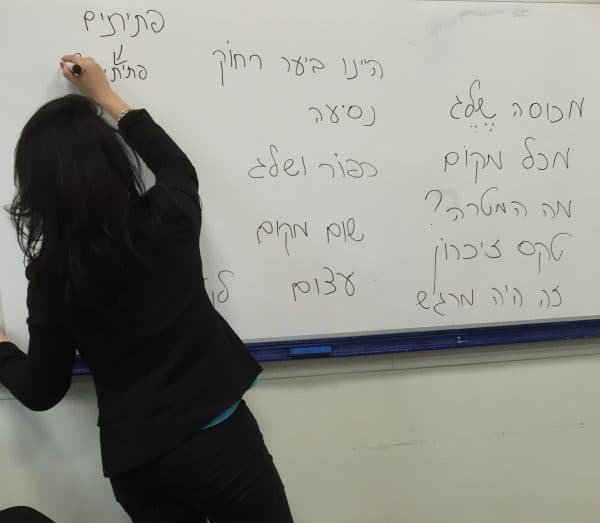 מכוסה שֶׁלֶג
מכל מקום
מה המטרה?
טקס זיכרון
זה היה מרגש
היינו ביער רחוק
נסיעה
כפור ושלג
שום מקום
עצום
פתיתים
פתית